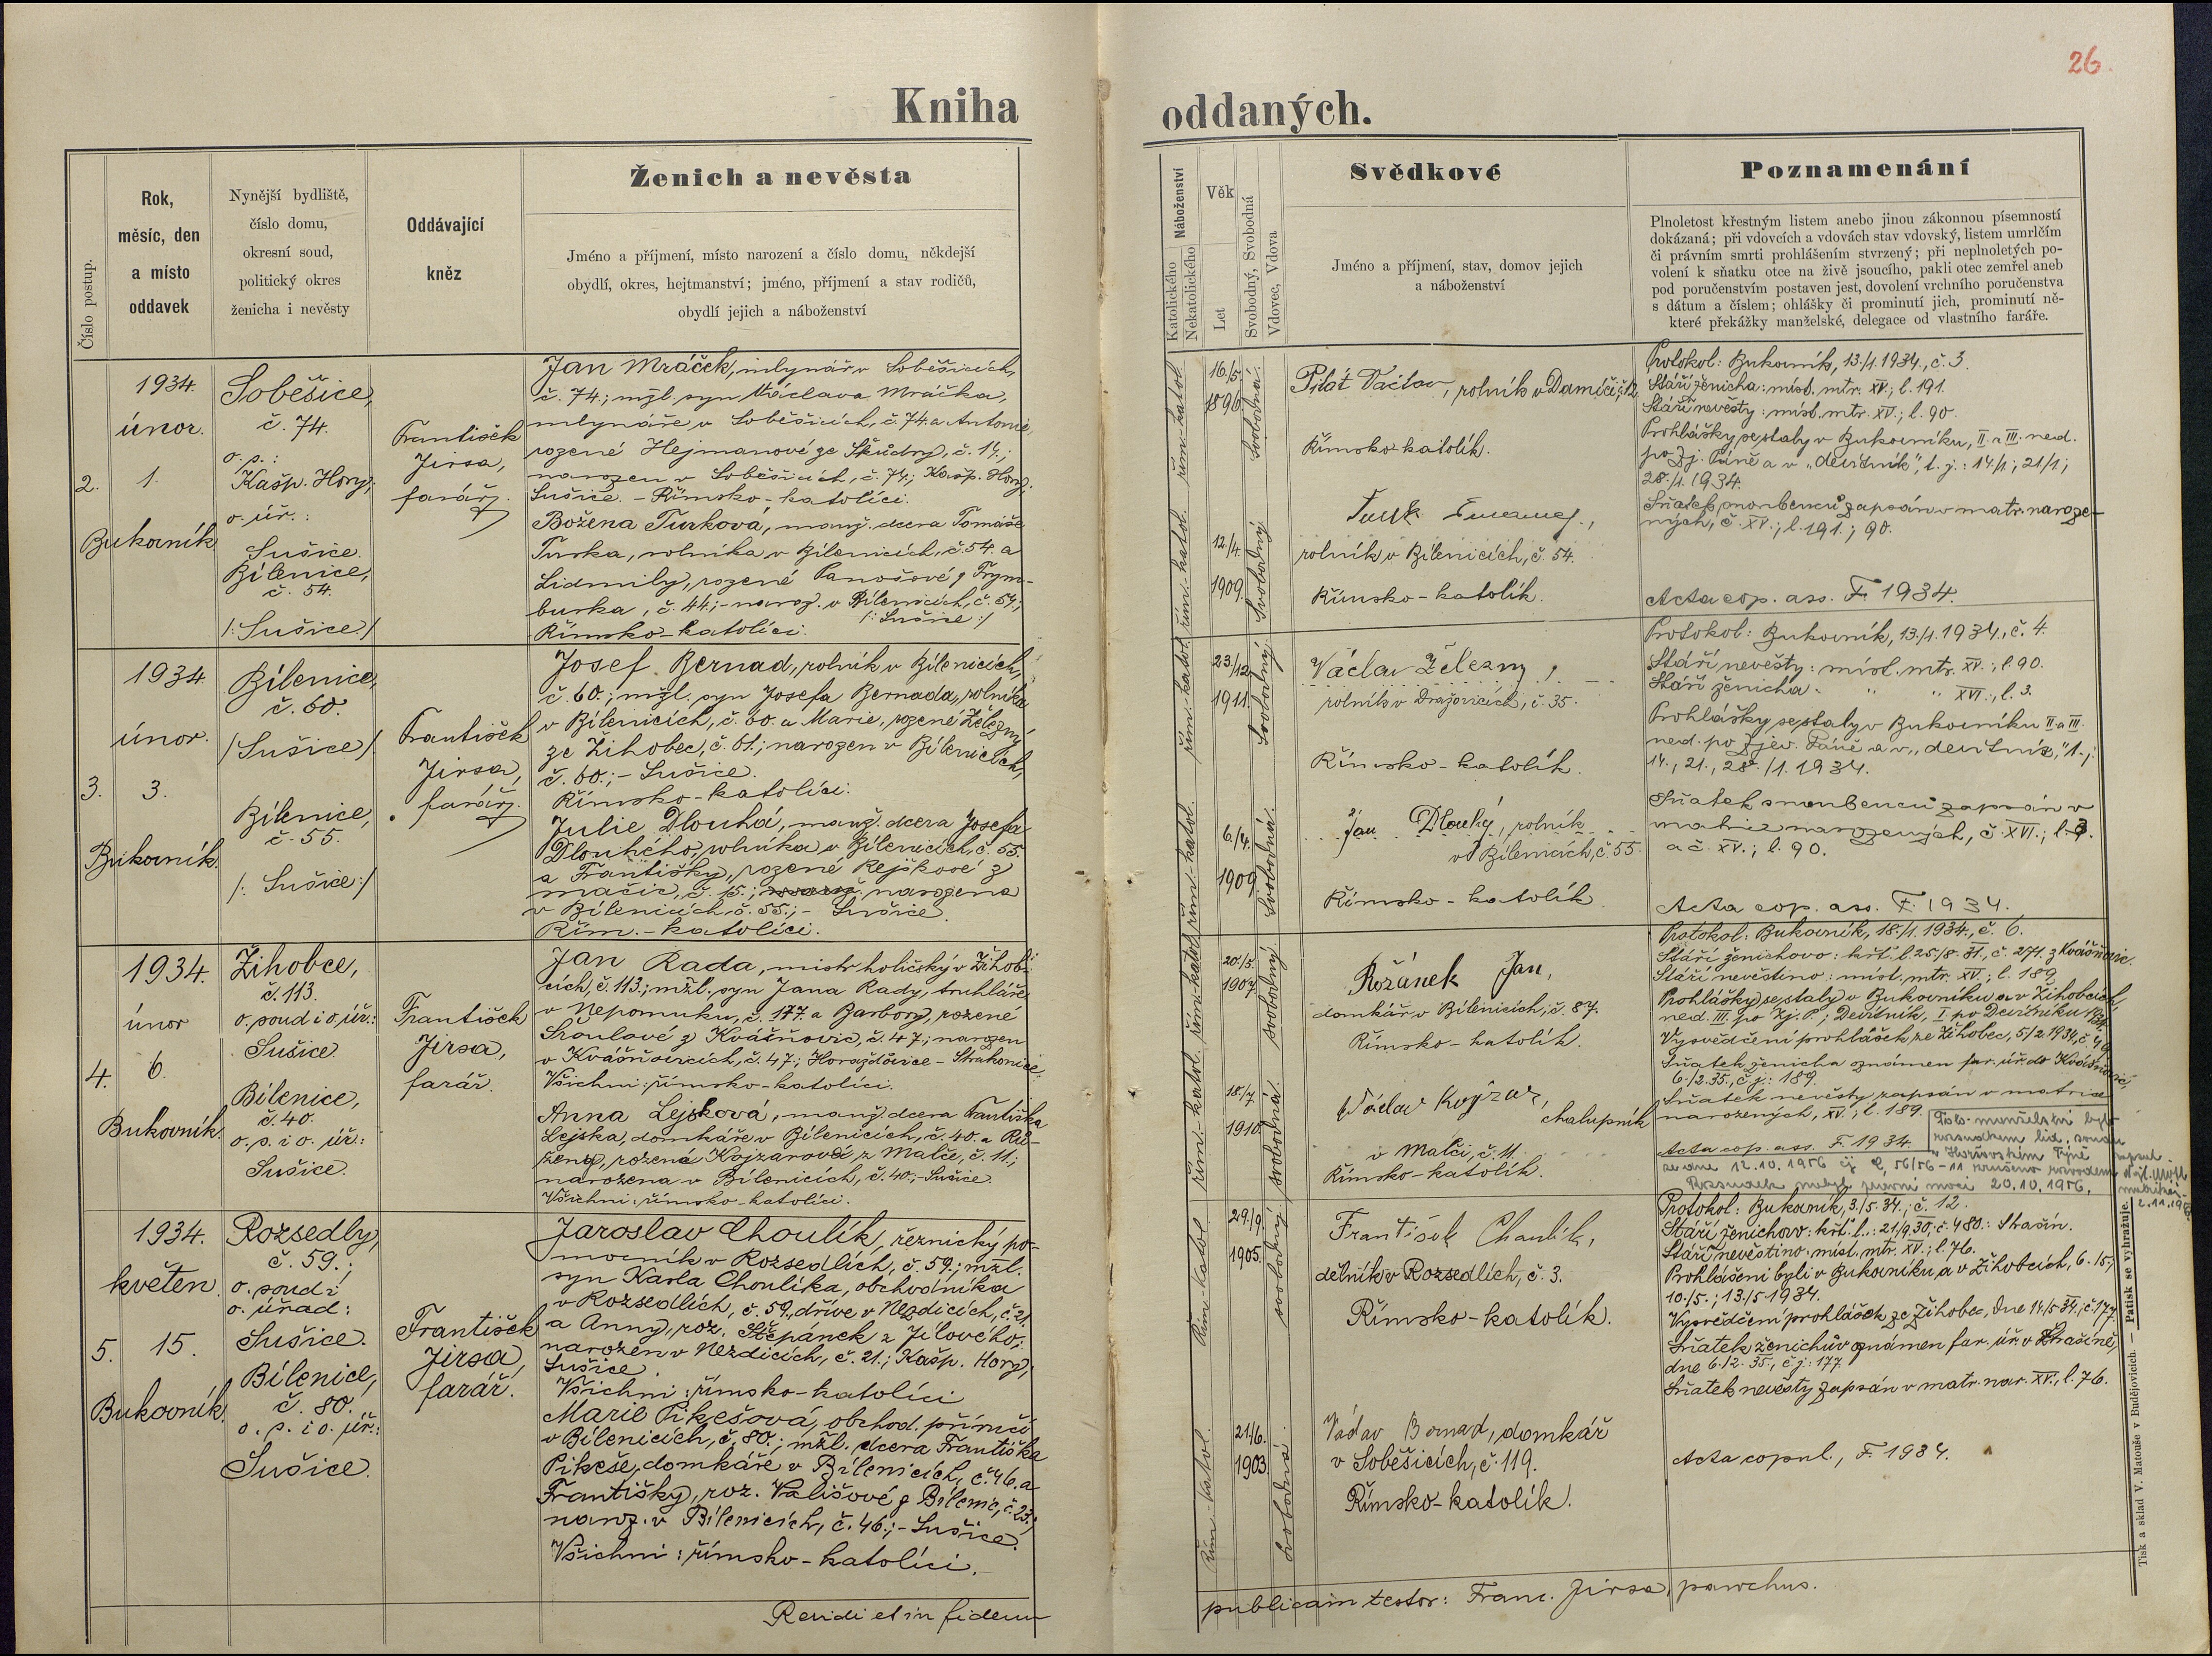 26.
Kniha oddaných.
Číslo postup.
Rok,
měsíc, den
a místo
oddavek
Nynější bydliště,
číslo domu,
okresní soud,
politický okres
ženicha i nevěsty
Oddávající
kněz
Ženich a nevěsta
Jméno a příjmení, místo narození a číslo domu, někdejší
obydlí, okres, hejtmanství; jméno, příjmení a stav rodičů,
obydlí jejich a náboženství
Náboženství
Katolického
Nekatolického
Věk
Let
Svobodný, Svobodná
Vdovec, Vdova
Svědkové
Jméno a příjmení, stav, domov jejich
a náboženství
Poznamenání
Plnoletost křestným listem anebo jinou zákonnou písemností
dokázaná; při vdovcích a vdovách stav vdovský, listem umrlčím
či právním smrti prohlášením stvrzený; při neplnoletých po-
volení k sňatku otce na živě jsoucího, pakli otec zemřel aneb
pod poručenstvím postaven jest, dovolení vrchního poručenstva
s dátum a číslem; ohlášky či prominutí jich, prominutí ně-
které překážky manželské, delegace od vlastního faráře.
2.
1934.
únor.
1.
Bukovník
Soběšice,
č. 74.
o. s.:
Kašp. Hory;
o. úř.:
Sušice.
Bílenice,
č. 54.
/:Sušice:/
František
Jirsa,
farář.
Jan Mráček, mlynář v Soběšicích,
č. 74.; mžl. syn Václava Mráčka,
mlynáře v Soběšicích, č. 74. a Antonie,
rozené Hejmanové ze , č. 14.;
narozen v Soběšicích, č. 74.; Kašp. Hory;
Sušice. - Římsko-katolíci.
Božena Turková, manž. dcera Tomáše
Turka, rolníka v Bílenicích, č. 54. a
Lidmily, rozené Panošové z Frym-
burka, č. 44.; - naroz. v Bílenicích, č. 54.;
Římsko-katolíci. /:Sušice:/
řím.-katol. řím.-katol.
16/5
1896
svobodná.
12/4
1909.
Svobodný
Pilát Václav, rolník v Damíči, č. 12.
Římsko-katolík.
Turek
rolník v Bílenicích, č. 54.
Římsko-katolík.
Protokol: Bukovník, 13/1. 1934., č. 3.
Stáří ženicha: míst. mtr. XV.; l. 191.
Stáří nevěsty: míst. mtr. XV.; l. 90.
Prohlášky se staly v Bukovníku, II. a III. ned.
po Zj. Páně a v „devítník", t. j.: 14/1.; 21/1.;
28./1. 1934.
Sňatek snoubenců zapsán v matr. naroze-
ných, č. XV.; l. 191.; 90.
Acta cop. ass. F. 1934.
3.
1934.
únor.
3.
Bukovník.
Bílenice,
č. 60.
/Sušice/.
Bílenice,
č. 55.
/:Sušice:/
František
Jirsa,
farář.
Josef Bernad, rolník v Bílenicích,
č. 60.; mžl. syn Josefa Bernada, rolníka
v Bílenicích, č. 60. a Marie, rozené Železný
ze Žihobec, č. 61.; narozen v Bílenicích,
č. 60.; - Sušice.
Římsko-katolíci.
Julie Dlouhá, manž. dcera Josefa
Dlouhého, rolníka v Bílenicích, č. 55.
a Františky, rozené Rejškové z
Mačic, č. 15.; narozena
v Bílenicích, č. 55.; - Sušice.
Řím.-katolíci.
řím.-katol. řím.-katol.
23/12
1911.
svobodný
6./4.
1909
svobodná.
Václav Železný,
rolník v Dražovicích, č. 35.
Římsko-katolík.
Jan Dlouhý, rolník
v Bílenicích, č. 55.
Římsko-katolík.
Protokol: Bukovník, 13/1. 1934., č. 4.
Stáří nevěsty: míst. mtr. XV.; l. 90.
Stáří ženicha: " " XVI.; l. 3.
Prohlášky se staly v Bukovníku II. a III.
ned. po Zjev. Páně a v „devítník," t. j.
14., 21., 28./1. 1934.
Sňatek snoubenců zapsán v
matrice narozených, č. XVI.; l. 3.
a č. XV.; l. 90.
Acta cop. ass. F. 1934.
4.
1934.
únor
6.
Bukovník.
Žihobce,
č. 113.
o. soud i o. úř.:
Sušice.
Bílenice,
č. 40.
o. s. i o. úř.:
Sušice.
František
Jirsa,
farář.
Jan Rada, mistr holičský v Žihob-
cích, č. 113.; mžl. syn Jana Rady, truhláře
v Nepomuku, č. 177. a Barbory, rozené
Sroulové z Kvášňovic, č. 47.; narozen
v Kvášňovicích, č. 47.; Horažďovice - Strakonice.
Všichni: římsko-katolíci.
Anna Lejsková, manž. dcera Františka
Lejska, domkáře v Bílenicích, č. 40. a Rů-
ženy, rozené Kojzarové z Malče, č. 11.;
narozena v Bílenicích, č. 40.; - Sušice.
Všichni: římsko-katolíci.
řím.-katol. řím.-katol.
20./5.
1907.
svobodný.
18./7.
1910.
svobodná.
Rožánek Jan,
domkář v Bílenicích, č. 87.
Římsko-katolík.
Václav Kojzar,
chalupník
v Malči, č. 11.
Římsko-katolík.
Protokol: Bukovník, 18./1. 1934., č. 6.
Stáří ženichovo: křt. l. 25./8. 31., č. 271. z Kvášňovic.
Stáří nevěstino: míst. mtr. XV.; l. 189.
Prohlášky se staly v Bukovníku a v Žihobcích,
ned. III. po Zj. P.; Devítník, I. po Devítníku 1934.
Vysvědčení prohlášek ze Žihobec, 5/2. 1934., č.
Sňatek ženicha oznámen far. úř. do Kvášňovic,
6./2. 35., č. j.: 189.
Sňatek nevěsty zapsán v matrice
narozených, XV.; l. 189.
Acta cop. ass. F. 1934.
Toto manželství bylo
rozsudkem lid. soudu
v Horšovském Týně
ze dne 12.10.1956 čj C 56/56-11 zrušeno rozvodem.
Rozsudek nabyl právní moci 20.10.1956.
5.
1934.
květen.
15.
Bukovník.
Rozsedly,
č. 59.;
o. soud i
o. úřad:
Sušice.
Bílenice,
č. 80.
o. s. i o. úř.:
Sušice.
František
Jirsa,
farář.
Jaroslav Choulík, řeznický po-
mocník v Rozsedlích, č. 59.; mžl.
syn Karla Choulíka, obchodníka
v Rozsedlích, č. 59., dříve v Nezdicích, č. 21.
a Anny, roz. Štěpánek z Jílového;
narozen v Nezdicích, č. 21.; Kašp. Hory;
Sušice.
Všichni: římsko-katolíci
Marie Pikešová, obchod. příručí
v Bílenicích, č. 80.; mžl. dcera Františka
Pikeše, domkáře v Bílenicích, č. 46. a
Františky, roz. Vališové z Bílenic, č. 23.;
naroz. v Bílenicích, č. 46.; - Sušice.
Všichni: římsko-katolíci.
Řím.-katol. Řím.-katol.
29./9.
1905.
svobodný
21./6.
1903.
svobodná.
František Choulík,
dělník v Rozsedlích, č. 3.
Římsko-katolík.
Václav Bernad, domkář
v Soběšicích, č. 119.
Římsko-katolík.
Protokol: Bukovník, 3./5. 34.; č. 12.
Stáří ženichovo: křt. l.: 21/9. 30., č. 480.: Strašín.
Stáří nevěstino: míst. mtr. XV.; l. 76.
Prohlášeni byli v Bukovníku a v Žihobcích, 6./5.;
10./5.; 13./5. 1934.
Vysvědčení prohlášek ze Žihobec, dne 14/5. 34., č. 177.
Sňatek ženichův oznámen far. úř. v Strašíně,
dne 6./2. 35., č. j.: 177.
Sňatek nevěsty zapsán v matr. nar. XV., l. 76.
Acta copul., F. 1934.
Revidi et in fidem
publicam testor: Franc. Jirsa, parochus.
Tisk a sklad V. Matouše v Budějovicích. — Patisk se vyhražuje.